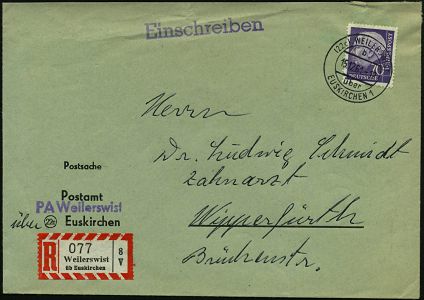 Einschreiben
WEILERSWIST
EUSKIRCHEN 1
über
70
DEUTSCHE
BUNDESPOST
Herrn
Dr. Ludwig Schmidt
Zahnarzt
Wipperfürth
Brückenstr.
Postsache
Postamt
PA Weilerswist
über (22c) Euskirchen
R
077
Weilerswist
üb Euskirchen
8
V